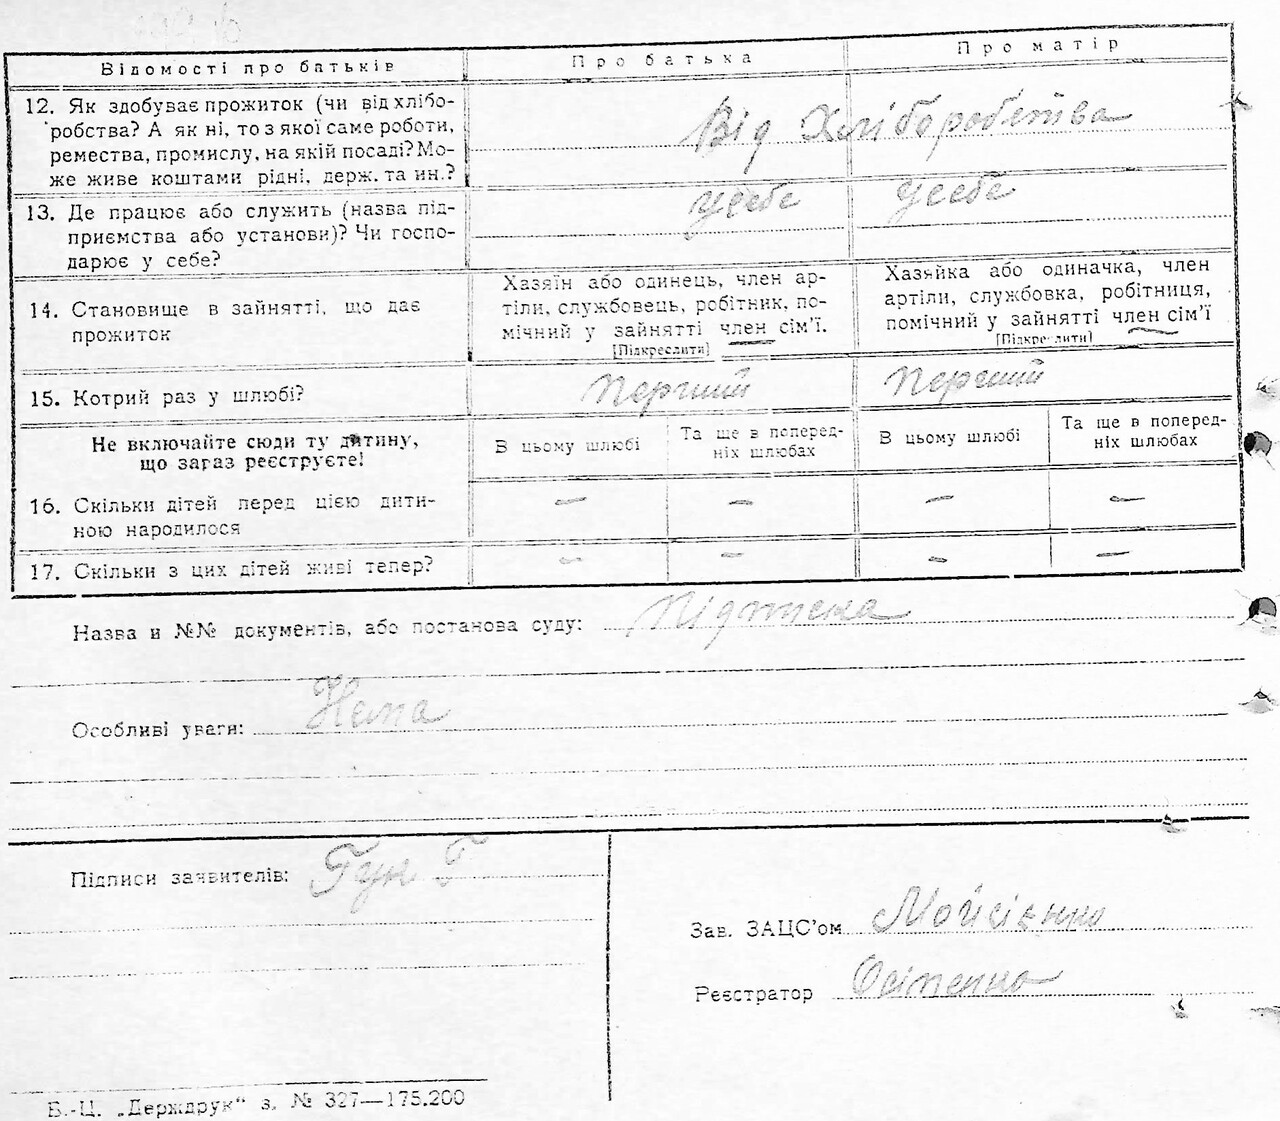 Відомості про батьків Про батька Про матір
12. Як здобуває прожиток (чи від хлібо-
робства? А як ні, то з якої саме роботи,
ремества, промислу, на якій посаді? Мо-
же живе коштами рідні, держ. та ин.?
Від Хліборобства
13. Де працює або служить (назва під-
приємства або установи)? Чи госпо-
дарює у себе?
Усебе Усебе
14. Становище в зайнятті, що дає
прожиток
Хазяїн або одинець, член ар-
тіли, службовець, робітник, по-
мічний у зайнятті член сім’ї.
[Підкреслити]
Хазяйка або одиначка, член
артіли, службовка, робітниця,
помічний у зайнятті член сім’ї
[Підкреслити]
15. Котрий раз у шлюбі? Перший Перший
Не включайте сюди ту дитину,
що зараз реєструєте!
В цьому шлюбі
Та ще в поперед-
ніх шлюбах
В цьому шлюбі
Та ще в поперед-
ніх шлюбах
16. Скільки дітей перед цією дити-
ною народилося
— — — —
17. Скільки з цих дітей живі тепер? — — — —
Назва и №№ документів, або постанова суду:
Особливі уваги: Нема
Підписи заявителів: Гук Г
Зав. ЗАЦС’ом
Реєстратор
Б.-Ц. „Держдрук“ з. № 327—175.200